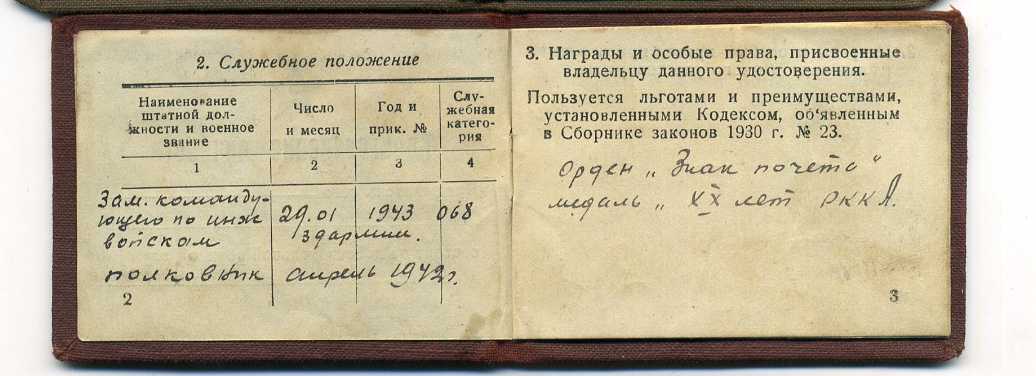 2. Служебное положение
Наименование штатной дол-жности и военное звание
Число и месяц
Год и прик. №
Слу-жебная катего-рия
1 2 3 4
Зам. команду-
ющего по инж 29.01 1943 068
войскам 3 дармии.
полковник апрель 1942г.
2
3. Награды и особые права, присвоенные
владельцу данного удостоверения.
Пользуется льготами и преимуществами,
установленными Кодексом, об'явленным
в Сборнике законов 1930 г. № 23.
Орден „Знак почета"
медаль „XX лет РККА.
3